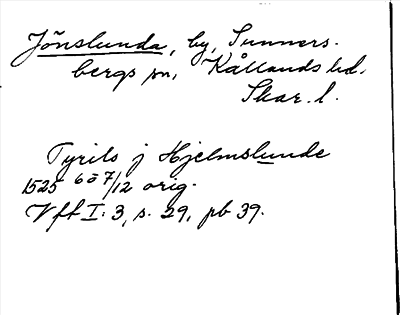 Jönslunda, by, Sunners-
bergs sn, Kållands hd.
Skar. l.
Tyrils j Hjelmslunde
1525 6/7 12 orig.
Vfl I: 3, s. 29, pb 39.